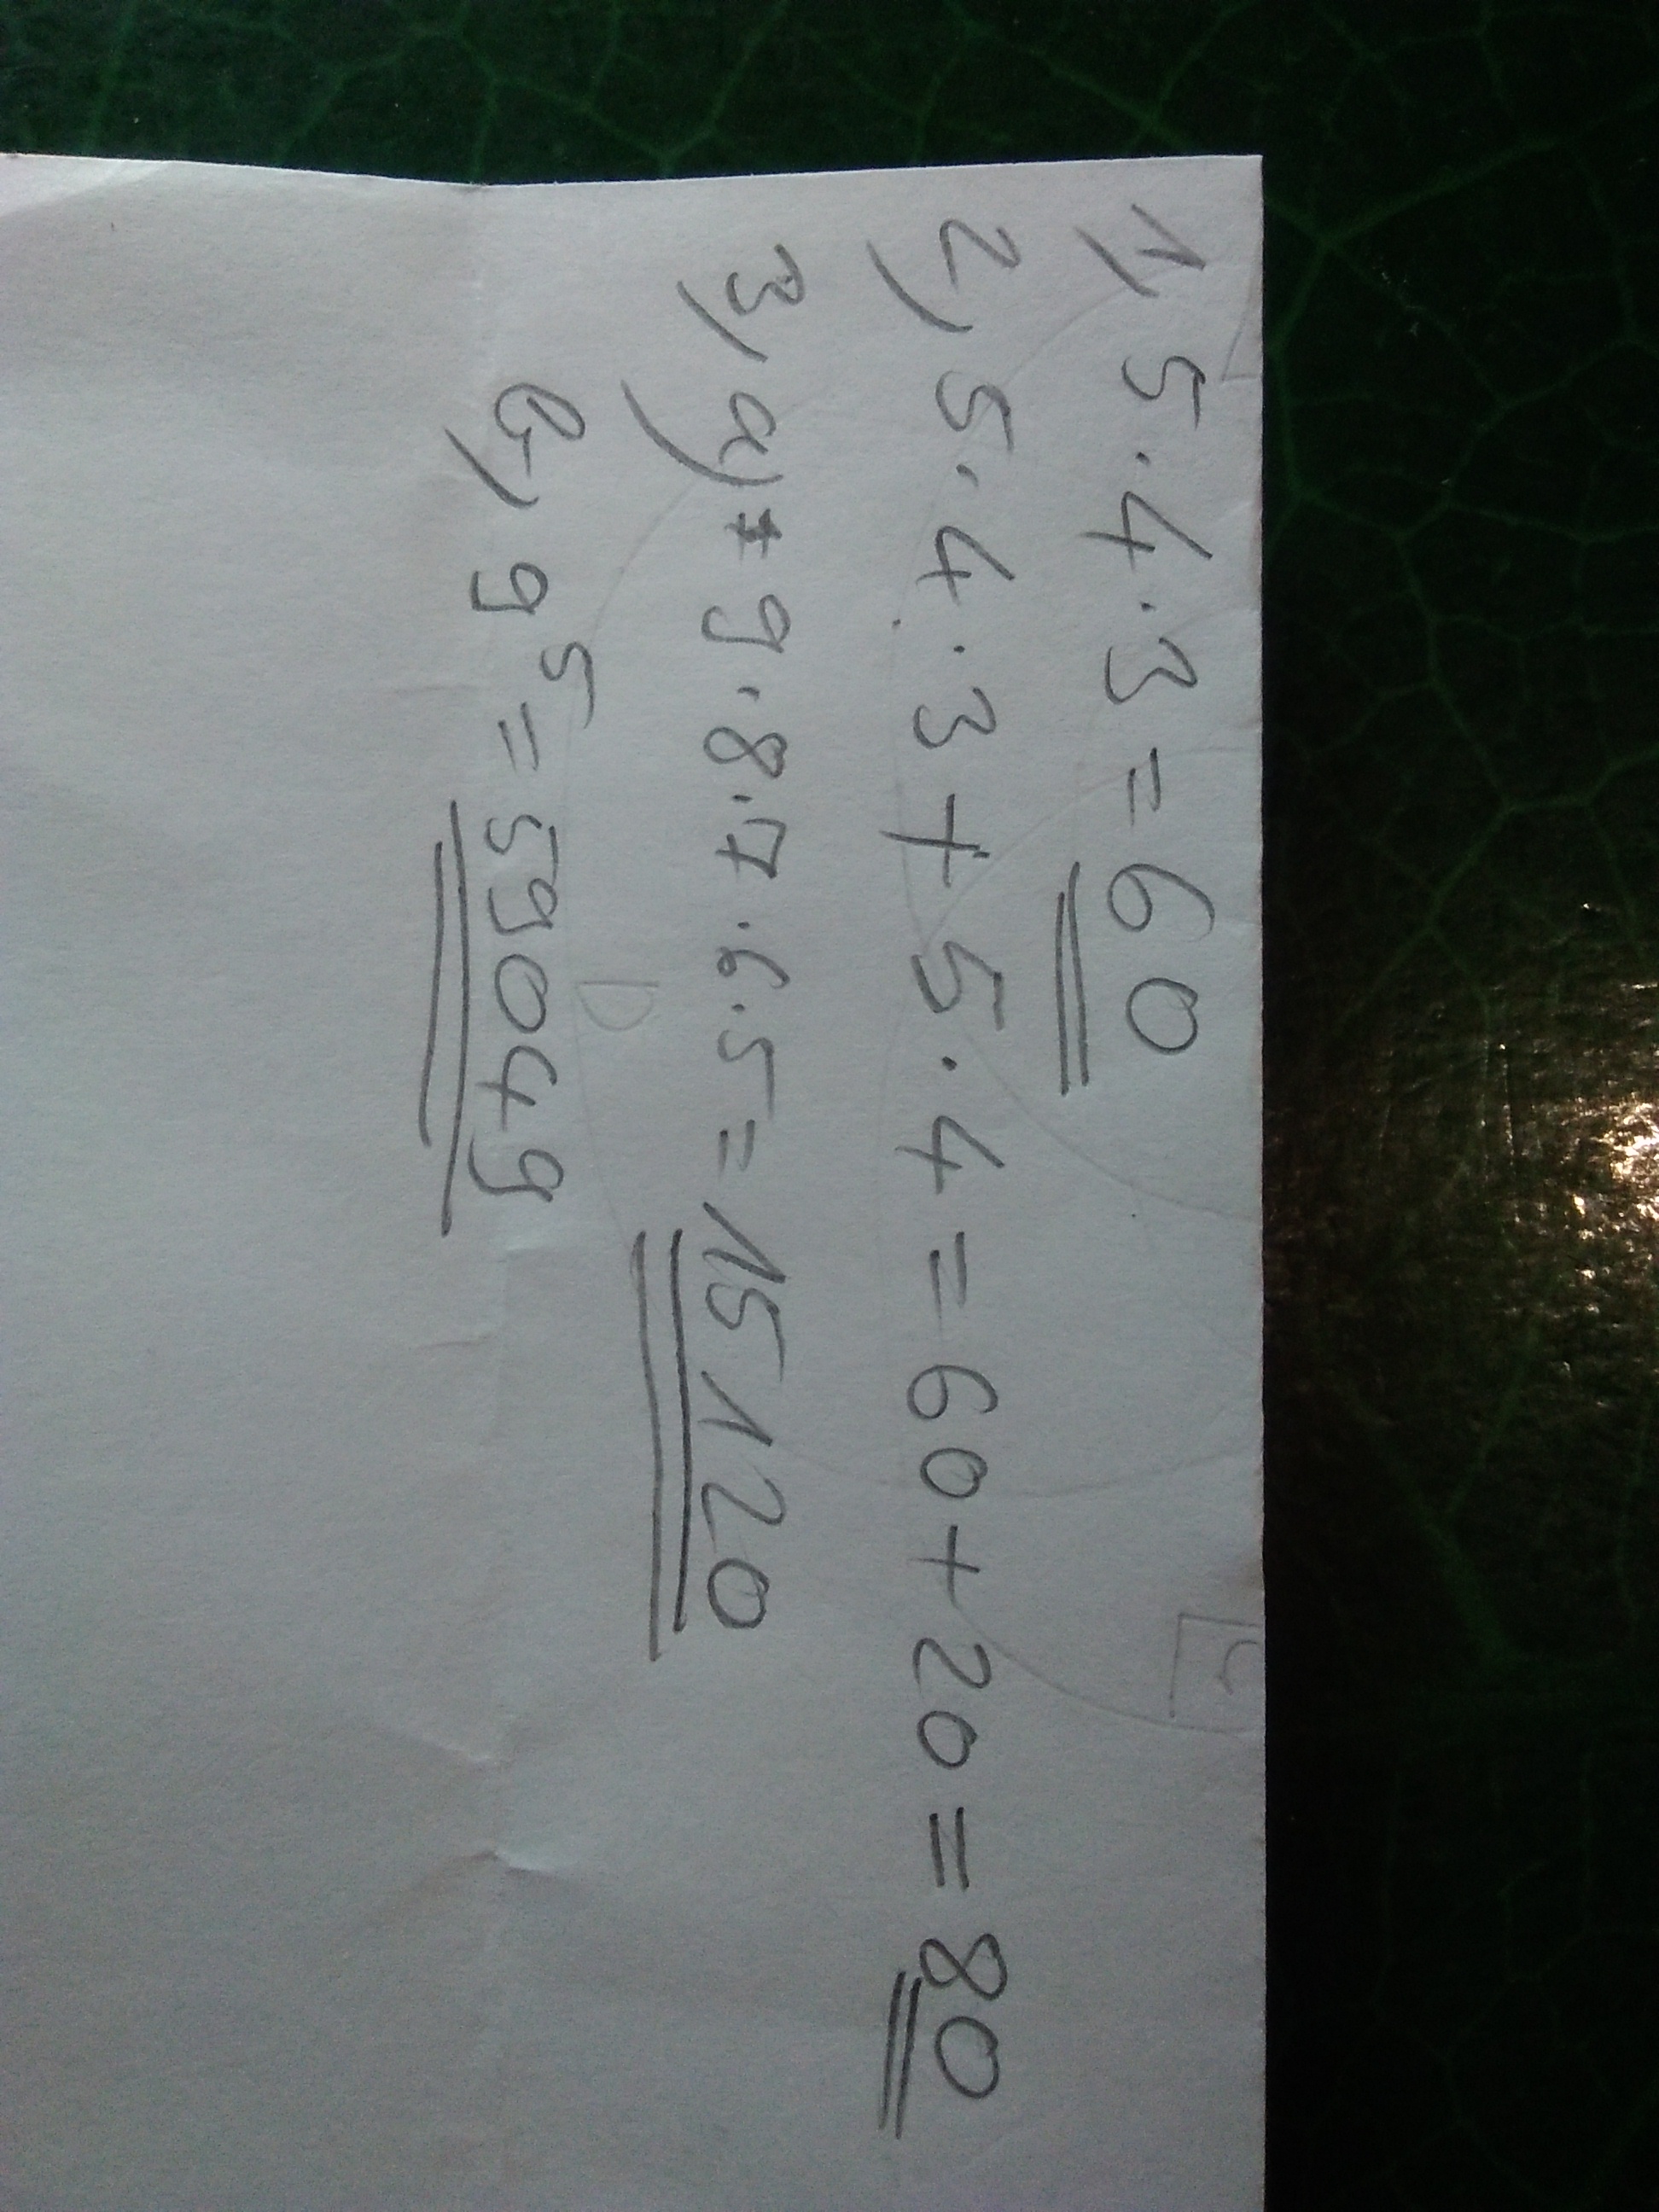 1) 5·4·3 = 60
2) 5·4·3 + 5·4 = 60 + 20 = 80
3) a) 9·8·7·6·5 = 15120
b) 9⁵ = 59049